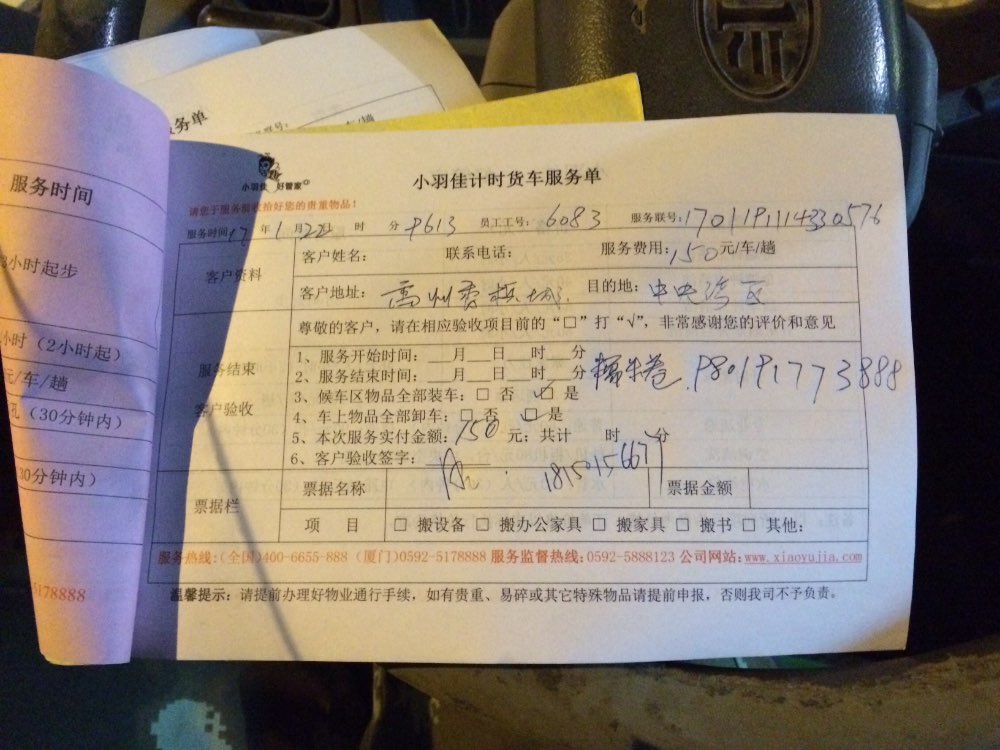 务单
服务时间
小时起步
小时（2小时起）
元/车/趟
（30分钟内）
30分钟内）
5178888
小羽佳 好管家
小羽佳计时货车服务单
请您于服务前收拾好您的贵重物品！
服务时间17年1月22日 时 分 员工工号：6083 服务联号：
客户资料
客户姓名： 联系电话： 服务费用：150元/车/趟
客户地址： 目的地：中央湾区
尊敬的客户，请在相应验收项目前的“□”打“√”，非常感谢您的评价和意见
服务结束
客户验收
1、服务开始时间：__月__日__时__分
2、服务结束时间：__月__日__时__分
3、候车区物品全部装车：□ 否 ☑ 是
4、车上物品全部卸车：□ 否 ☑ 是
5、本次服务实付金额：150 元；共计 时 分
6、客户验收签字：
票据栏
票据名称 票据金额
项 目 □ 搬设备 □ 搬办公家具 □ 搬家具 □ 搬书 □ 其他：
服务热线：(全国)400-6655-888 (厦门)0592-5178888 服务监督热线：0592-5888123 公司网站：www.xiaoyujia.com
温馨提示：请提前办理好物业通行手续，如有贵重、易碎或其它特殊物品请提前申报，否则我司不予负责。